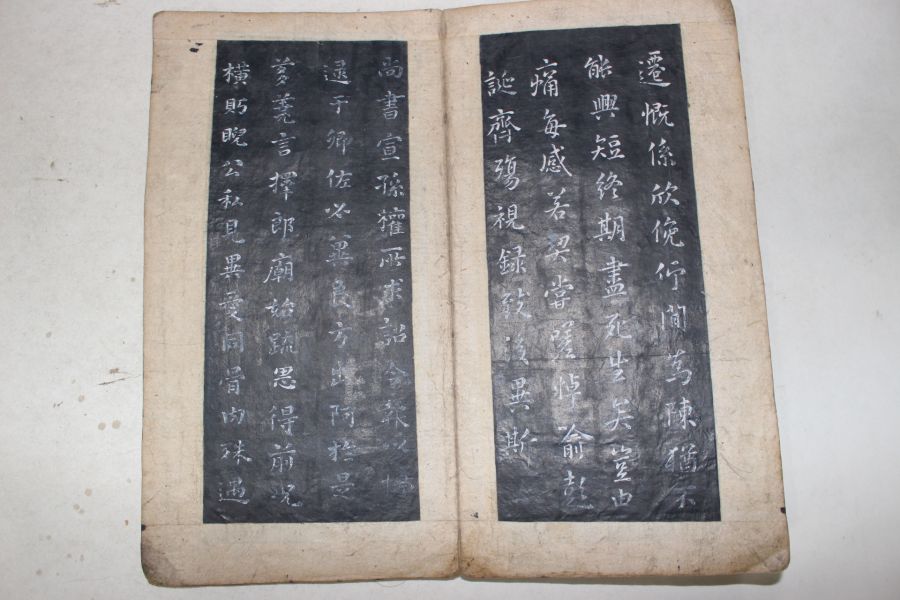 遷慨係欣俛仰間為陳猶不
能興短終期盡死生矣豈由
痛每感若契嘗嗟悼喻彭
誕齊殤視録致後異斯
尚書宣孫權所求詔令報以博
逮于卿佐必冀良方出阿於是
芻蕘言擇郎廟始疏恩得前况
橫眄睨公私見異愛同骨肉殊遇